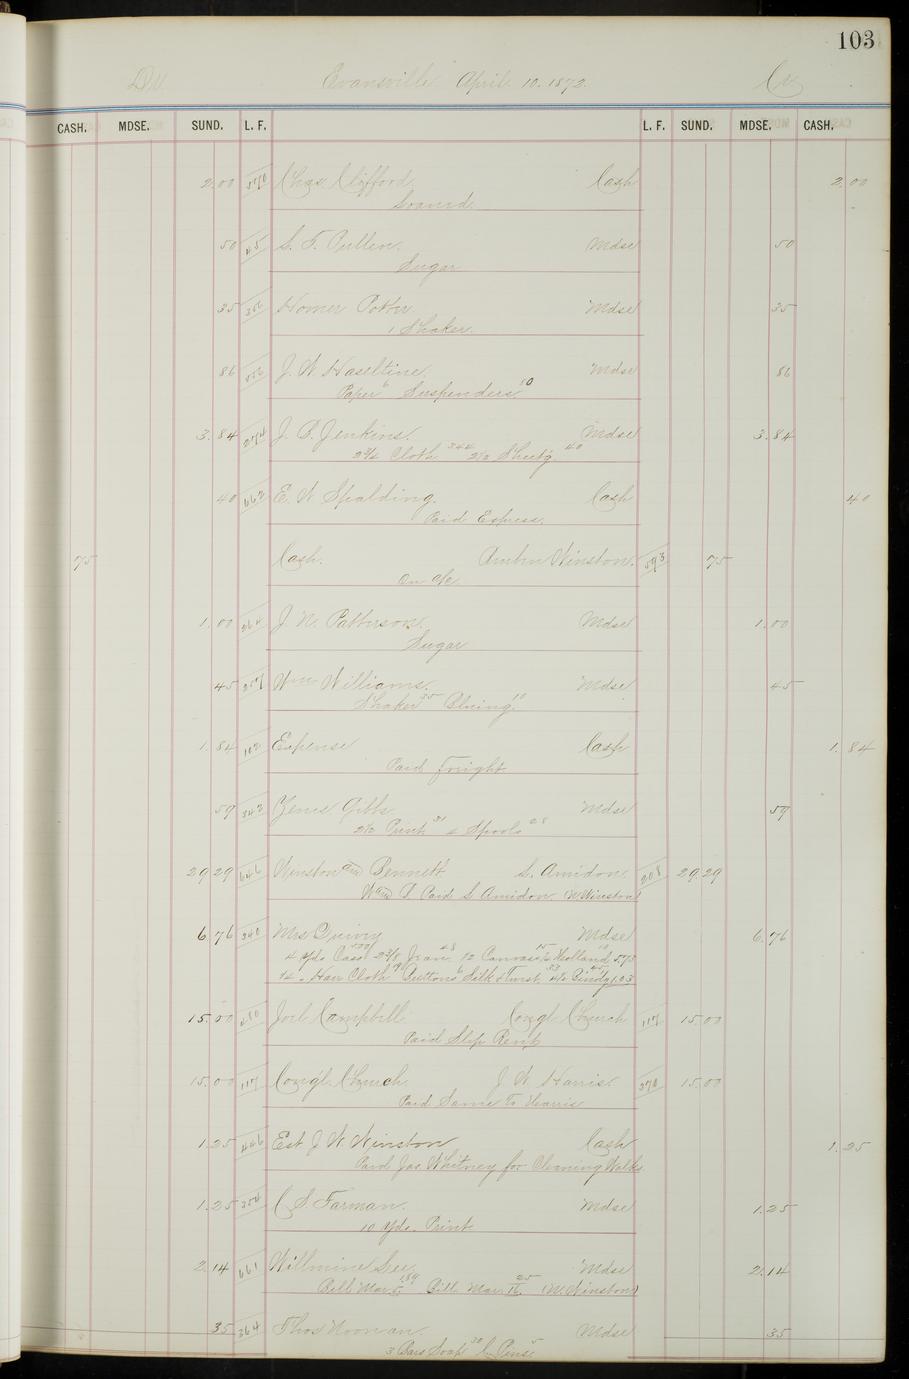 103
Dr. Evansville April 10. 1872. Cr
CASH. MDSE. SUND. L. F. L. F. SUND. MDSE. CASH.
2.00 570 Chas. Clifford Cash 2.00
Loaned.
50 45 S. F. Pullen. Mdse 50
Sugar
35 Homer Potter Mdse 35
1 Shaker.
86 556 J. W. Haseltine. Mdse 86
Paper 6 Suspenders 80
3.84 274 J. C. Jenkins. Mdse 3.84
2 3/4 Cloth 344 2 1/2 Sheetg 40
40 662 E. W Spalding. Cash 40
Paid Express.
75 Cash. Winston. 593 75
On a/c
1.00 364 J. W. Patterson. Mdse 1.00
Sugar
45 257 Wm Williams. Mdse 45
Shaker 35 Bluing 10
1.84 102 Expense Cash 1.84
Paid Freight
59 342 Gibbs Mdse 59
2 1/2 Print 31 4 Spools 28
29.29 646 Winston and Bennett S. Amidon. 208 29.29
W and B. Paid S. Amidon. W. Winston
6.76 340 Mrs Quivey Mdse 6.76
4 yds Cass 2 3/8 Jean 48 12 Canvas 15 Holland 10 5.73
14 " Hair Cloth 9 Buttons 6 Silk & Twist 33 Bindg 1.03
15.00 480 Joel Campbell Congl Church 117 15.00
Paid Slip Rent
15.00 117 Congl. Church J. W. Harris 370 15.00
Paid Same to Harris
1.25 446 Est J. W. Winston Cash 1.25
Paid Jas. Whitney for Cleaning Walks
1.25 354 C. S. Farman. Mdse 1.25
10 yds. Print
2.14 661 Willmine Lee. Mdse 2.14
Bill Mar 5. 189 Bill Mar 16. 25 (W. Winston)
35 364 Thos Noonan. Mdse 35
3 Bars Soap 30 Pins 5